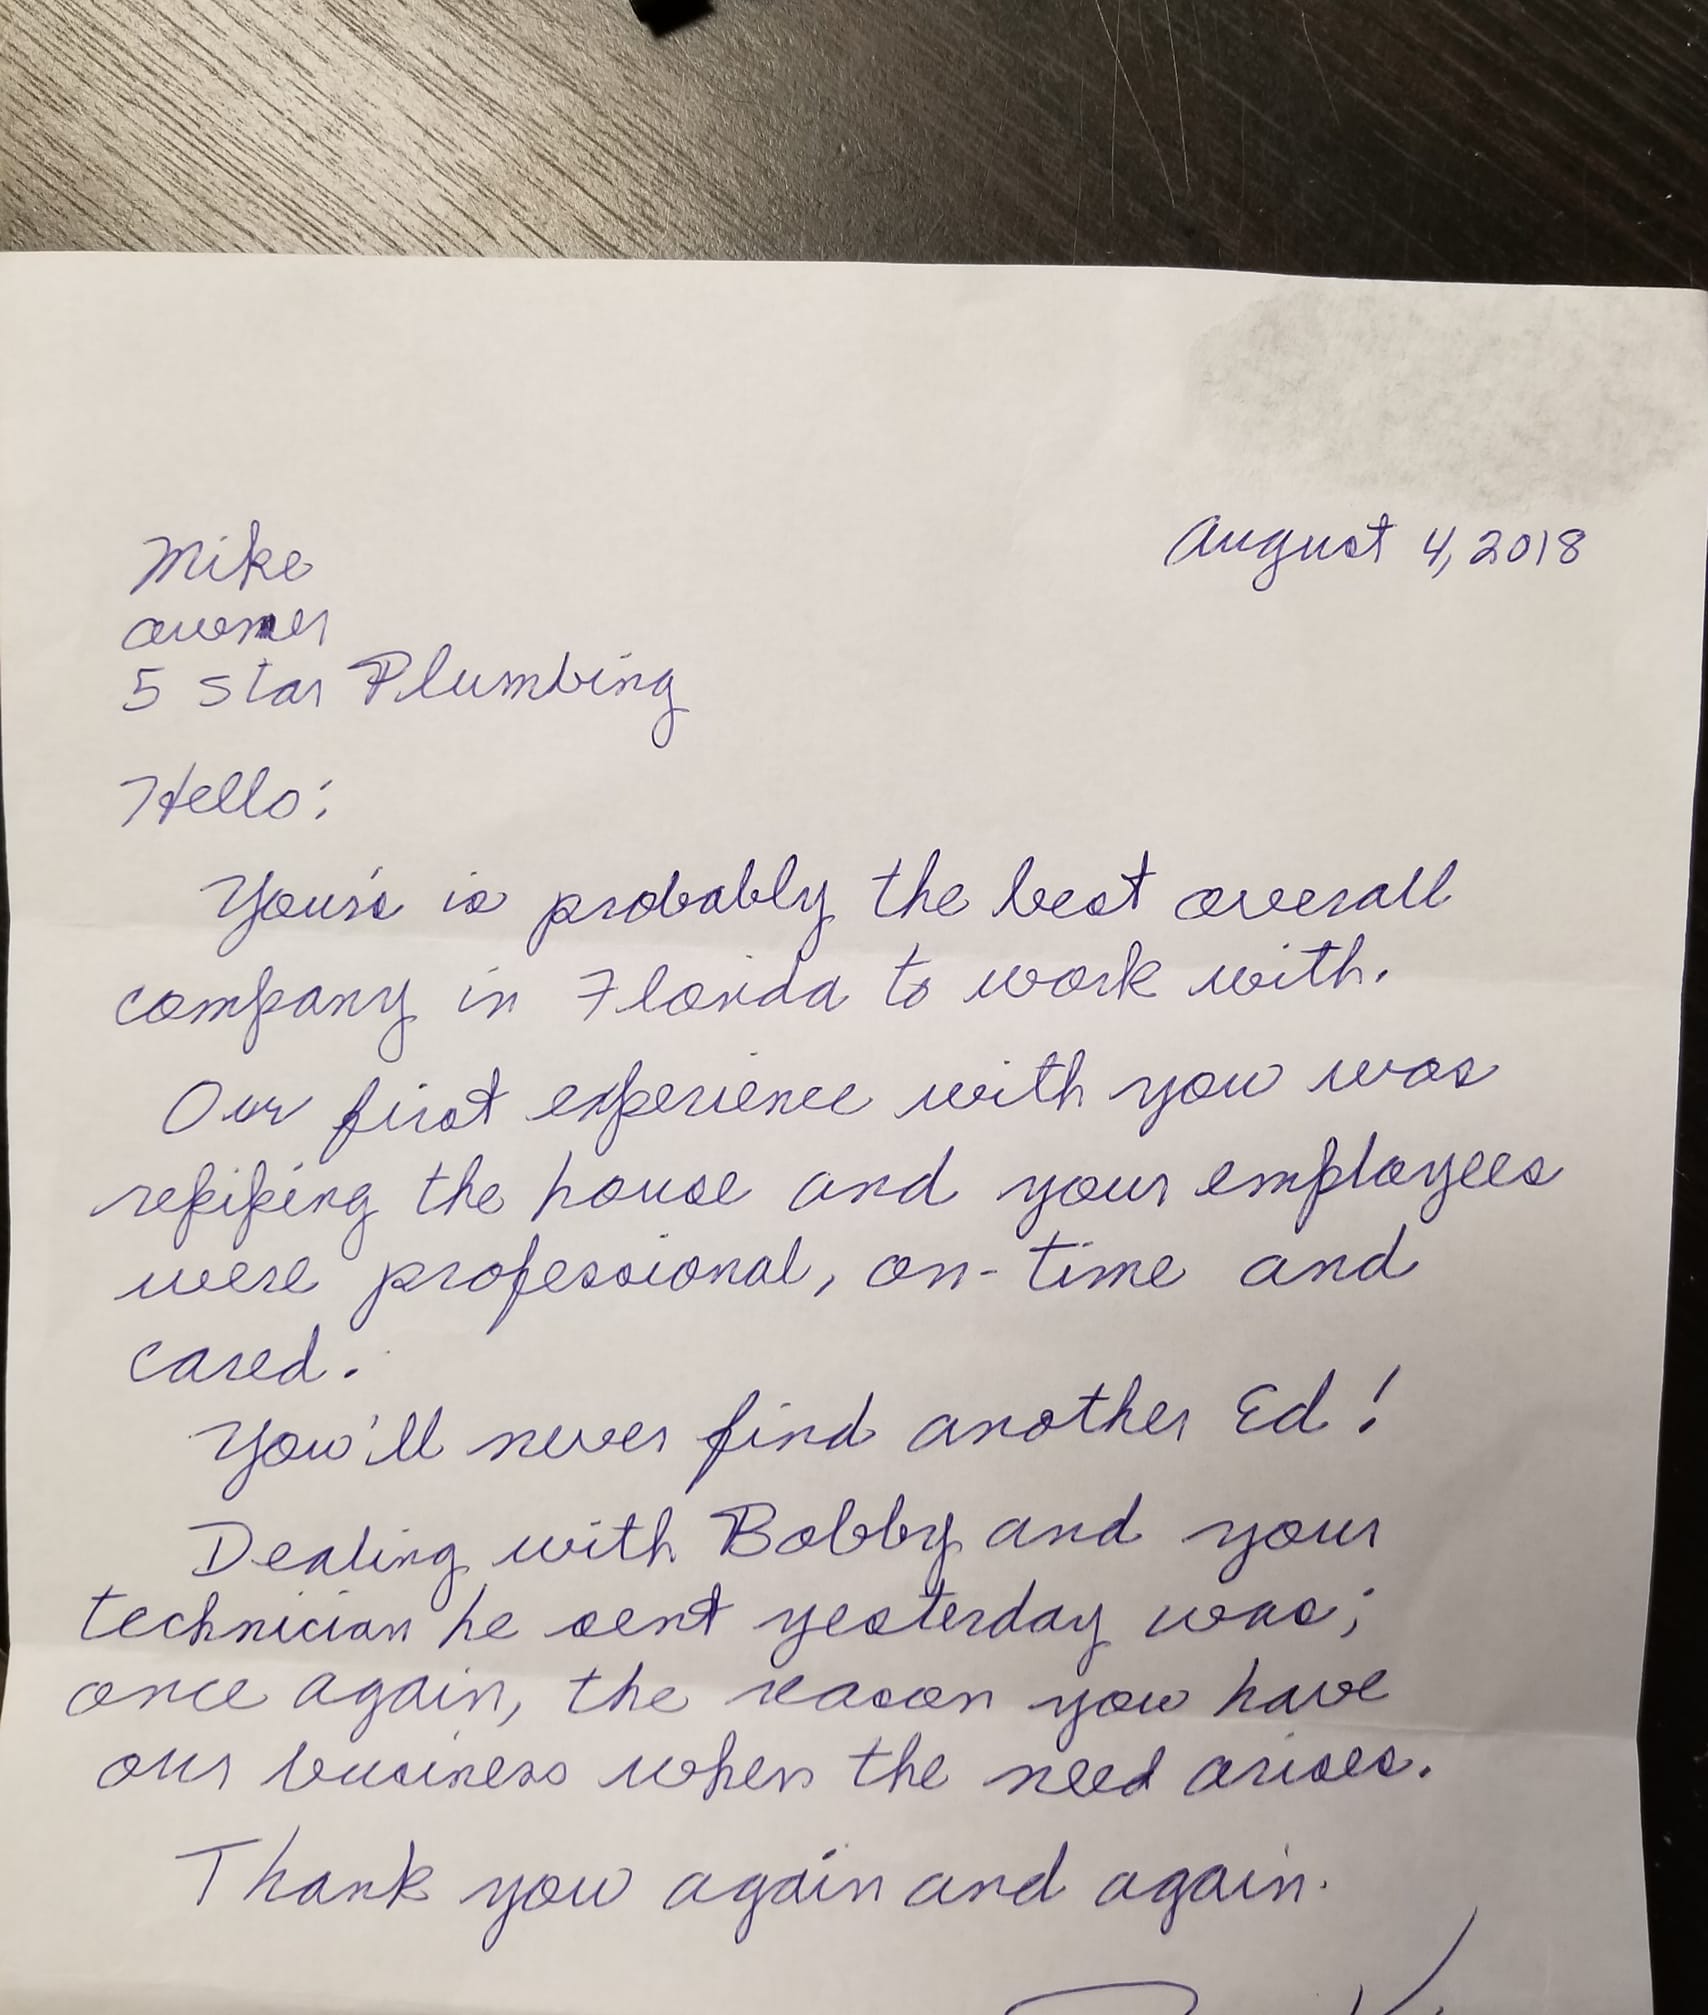 August 4, 2018
Mike
owner
5 Star Plumbing
Hello:
Your's is probably the best overall
company in Florida to work with.
Our first experience with you was
repiping the house and your employees
were professional, on-time and
cared.
You'll never find another Ed!
Dealing with Bobby and your
technician he sent yesterday was;
once again, the reason you have
our business when the need arises.
Thank you again and again.